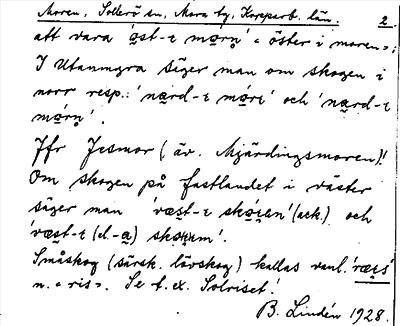 Moren. Sollerö sn, Mora tg, Kopparb. län. 2.
att vara 'ǫst-ɪ mǫrn̥' « öster i moren »;
I Utanmyra säger man om skogen i
norr resp.: 'nąrd-ɪ mǫrɪ' och 'nąrd-ɪ
mǫrn̥'.
Jfr Jesmor (äv. Mjärdingsmoren)!
Om skogen på fastlandet i väster
säger man 'væst-ɪ skǫgan' (ack.) och
'væst-ɪ (el. -a) skogum'.
Småskog (särsk. lövskog) kallas vanl. 'ræis'
n. « ris ». Se t. ex. Solriset!
B. Lindén 1928.